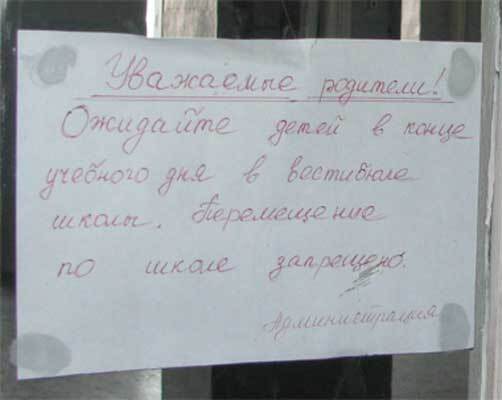 Уважаемые родители!
Ожидайте детей в конце
учебного дня в вестибюле
школы. Перемещение
по школе запрещено.
Администрация